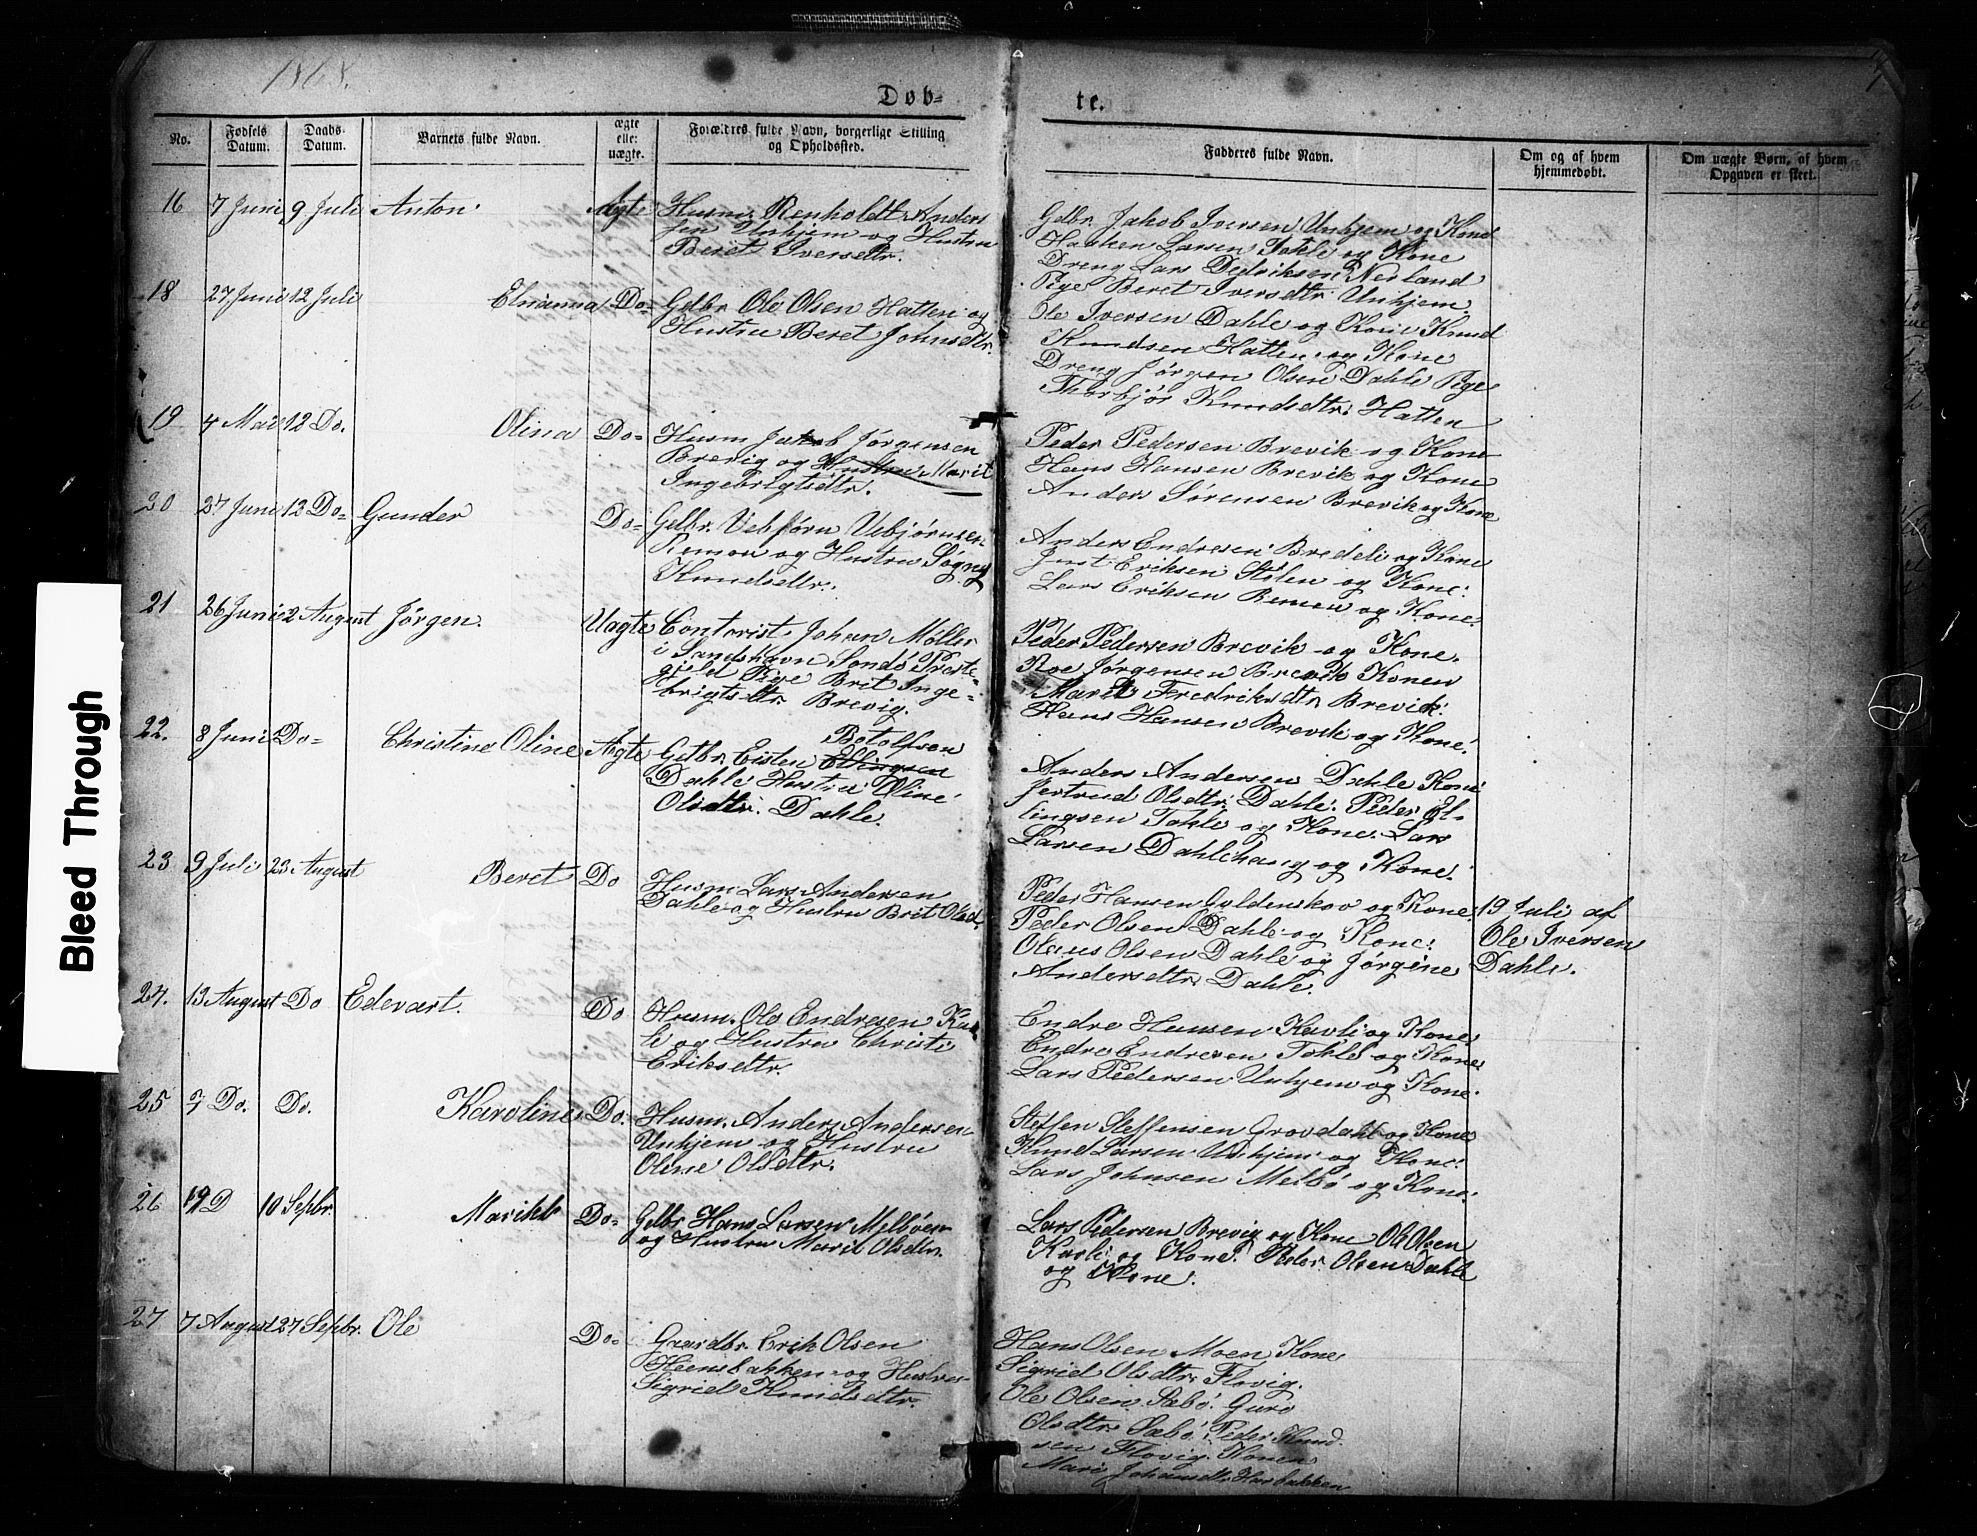 1868.
Døb=
te.
No.
Fødsels Datum.
Daabs- Datum.
Barnets fulde Navn.
ægte elle: uægte.
Forældres fulde Navn, borgerlige Stilling og Opholdssted.
Fadderes fulde Navn.
Om og af hvem hjemmedøbt.
Om uægte Børn, af hvem Opgaven er skeet.
16 7 Juni 9 Juli Anton. Ægte Husm. Renholdt Anders
sen Unhjem og Hustru
Beret Iversdtr.
Gdbr. Jakob Iversen Unhjem og Kone
Haaken Larsen Tokle og Kone
Dreng Lars Pedriksen Nerland
Pige Beret Iversdtr. Unhjem.
18 27 Juni 12 Juli Elnanna Do= Gdbr. Ole Olsen Hatten og
Hustru Beret Johnsdtr.
Ole Iversen Dahle og Kone Knud
Knudsen Hatten og Kone
Dreng Jørgen Olsen Dahle Pige
Thorbjør Knudsdtr. Hatten
19 4 Mai 12 Do. Olina Do= Husm Jakob Jørgensen
Brevig og Hustru Marit
Ingebrigtsdtr.
Peder Pedersen Brevik og Kone
Hans Hansen Brevik og Kone
Anders Sørensen Brevik og Kone
20 27 Juni 12 Do= Gunder Do= Gdbr. Vebjørn Vebjørnsen
Remen og Hustru Søgny
Knudsdtr.
Anders Endresen Bredeli og Kone
Just Eriksen Stölen og Kone.
Lars Eriksen Remen og Kone.
21 26 Juni 2 August Jørgen. Uægte Contorist Johan Møller
i Sandshavn Sondö Preste-
gjeld Pige Brit Inge-
brigtsdtr. Brevig.
Peder Pedersen Brevik og Kone.
Roe Jørgensen Brevik Konen
Marit Fredriksdtr Brevik.
Hans Hansen Brevik og Kone.
22. 8 Juni Do= Christine Oline Ægte Gdbr. Eisten Ellingsen
Botolfsen
Dahle Hustru Oline
Olsdtr. Dahle.
Anders Andersen Dahle Kone
Jertrud Olsdtr. Dahle. Peder El-
lingsen Tokle og Kone. Lars
Larsen Dahlehaug og Kone.
23 9 Juli 23 August Beret Do Husm Lars Andersen
Dahle og Hustru Brit Olsd.
Peder Hansen Gyldenskov og Kone
Peder Olsen Dahle og Kone.
Olaus Olsen Dahle og Jørgine
Andersdtr. Dahle.
19 Juli af
Ole Iversen
Dahle.
24. 13 August Do Edevart. Do Husm. Ole Endresen Kav
li og Hustru Christi
Eriksdtr.
Endre Hansen Kavli og Kone.
Endre Endresen Tokle og Kone.
Lars Pedersen Unhjem og Kone.
25 7 Do. Do. Karoline Do. Husm. Anders Andersen
Unhjem og Hustru
Oline Olsdtr.
Steffen Steffensen Grovdahl og Kone
Knud Larsen Unhjem og Kone.
Lars Johnsen Melbö og Kone.
26 19 D 10 Sepbr. Do= Gdbr Hans Larsen Melbøen
og Hustru Marit Olsdtr.
Lars Pedersen Brevig og Kone Ole Olsen
Kavli og Kone. Peder Olsen Dahle
og Kone.
27 7 August 27 Sepbr. Ole Do= Gaardbr. Erik Olsen
og Hustru
Sigrid Knudsdtr.
Hans Olsen Moen Kone
Sigrid Olsdtr. Flovig.
Ole Olsen Sæbö. Guro
Olsdtr. Sæbö. Peder Knud-
sen Flovig. Konen
Mari
Bleed Through